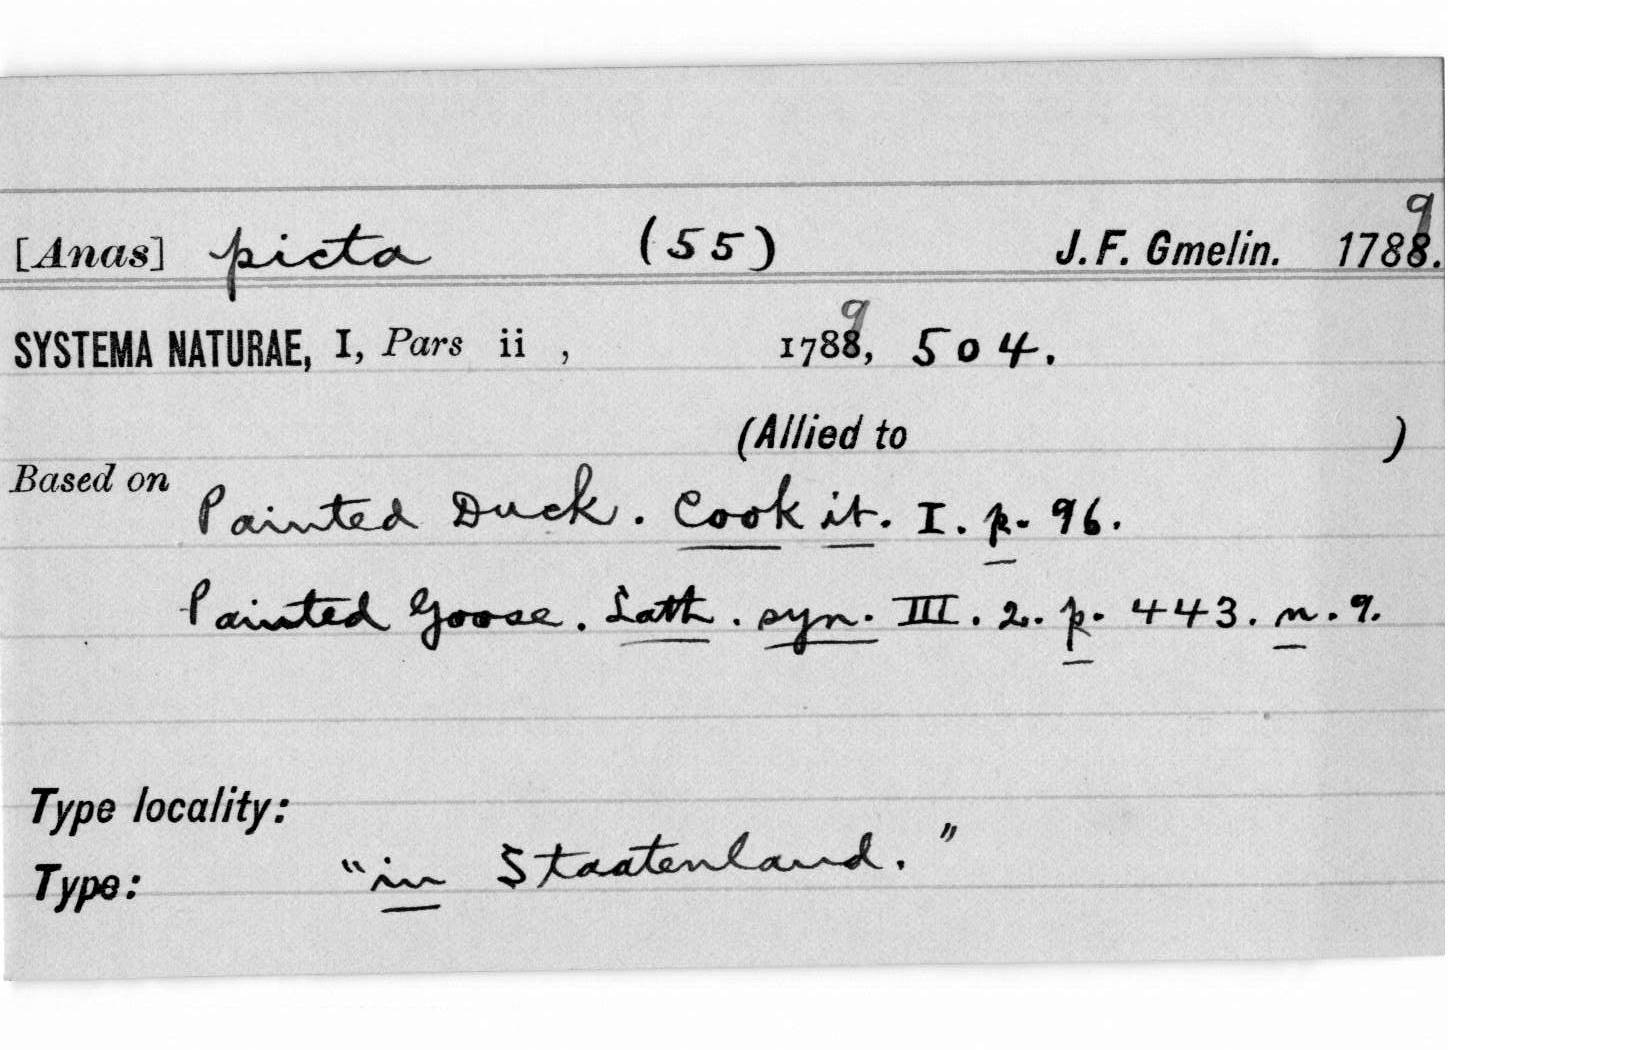 [Anas] picta (55) J. F. Gmelin. 1788. 9
SYSTEMA NATURAE, I, Pars ii , 1788, 9 504.
(Allied to )
Based on
Painted Duck. Cook it. I. p. 96.
Painted Goose. Lath. syn. III. 2. p. 443. n. 9.
Type locality:
Type: "in Staatenland."